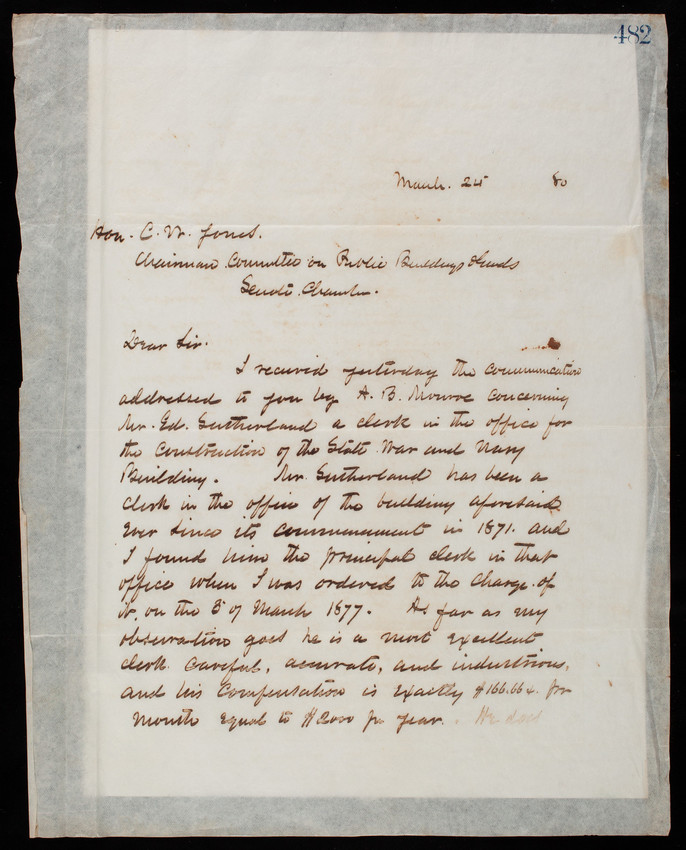 482
March. 24 80
Hon. C. W. Jones.
Chairman Committee on Public Buildings & Grounds
Senate Chamber.
Dear Sir.
I received yesterday the communication
addressed to you by A. B. Monroe concerning
Mr. Ed. Sutherland a clerk in the office for
the Construction of the State War and Navy
Building. Mr. Sutherland has been a
clerk in the office of the building aforesaid
ever since its commencement in 1871. and
I found him the principal clerk in that
office when I was ordered to the charge of
it, on the 3d of March 1877. As far as my
observation goes he is a most excellent
clerk careful, accurate, and industrious,
and his compensation is exactly $166.66 per
month equal to $2000 per year. He does